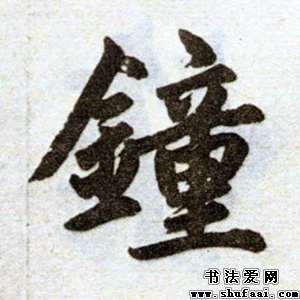 鐘
书法爱网
www.shufaai.com